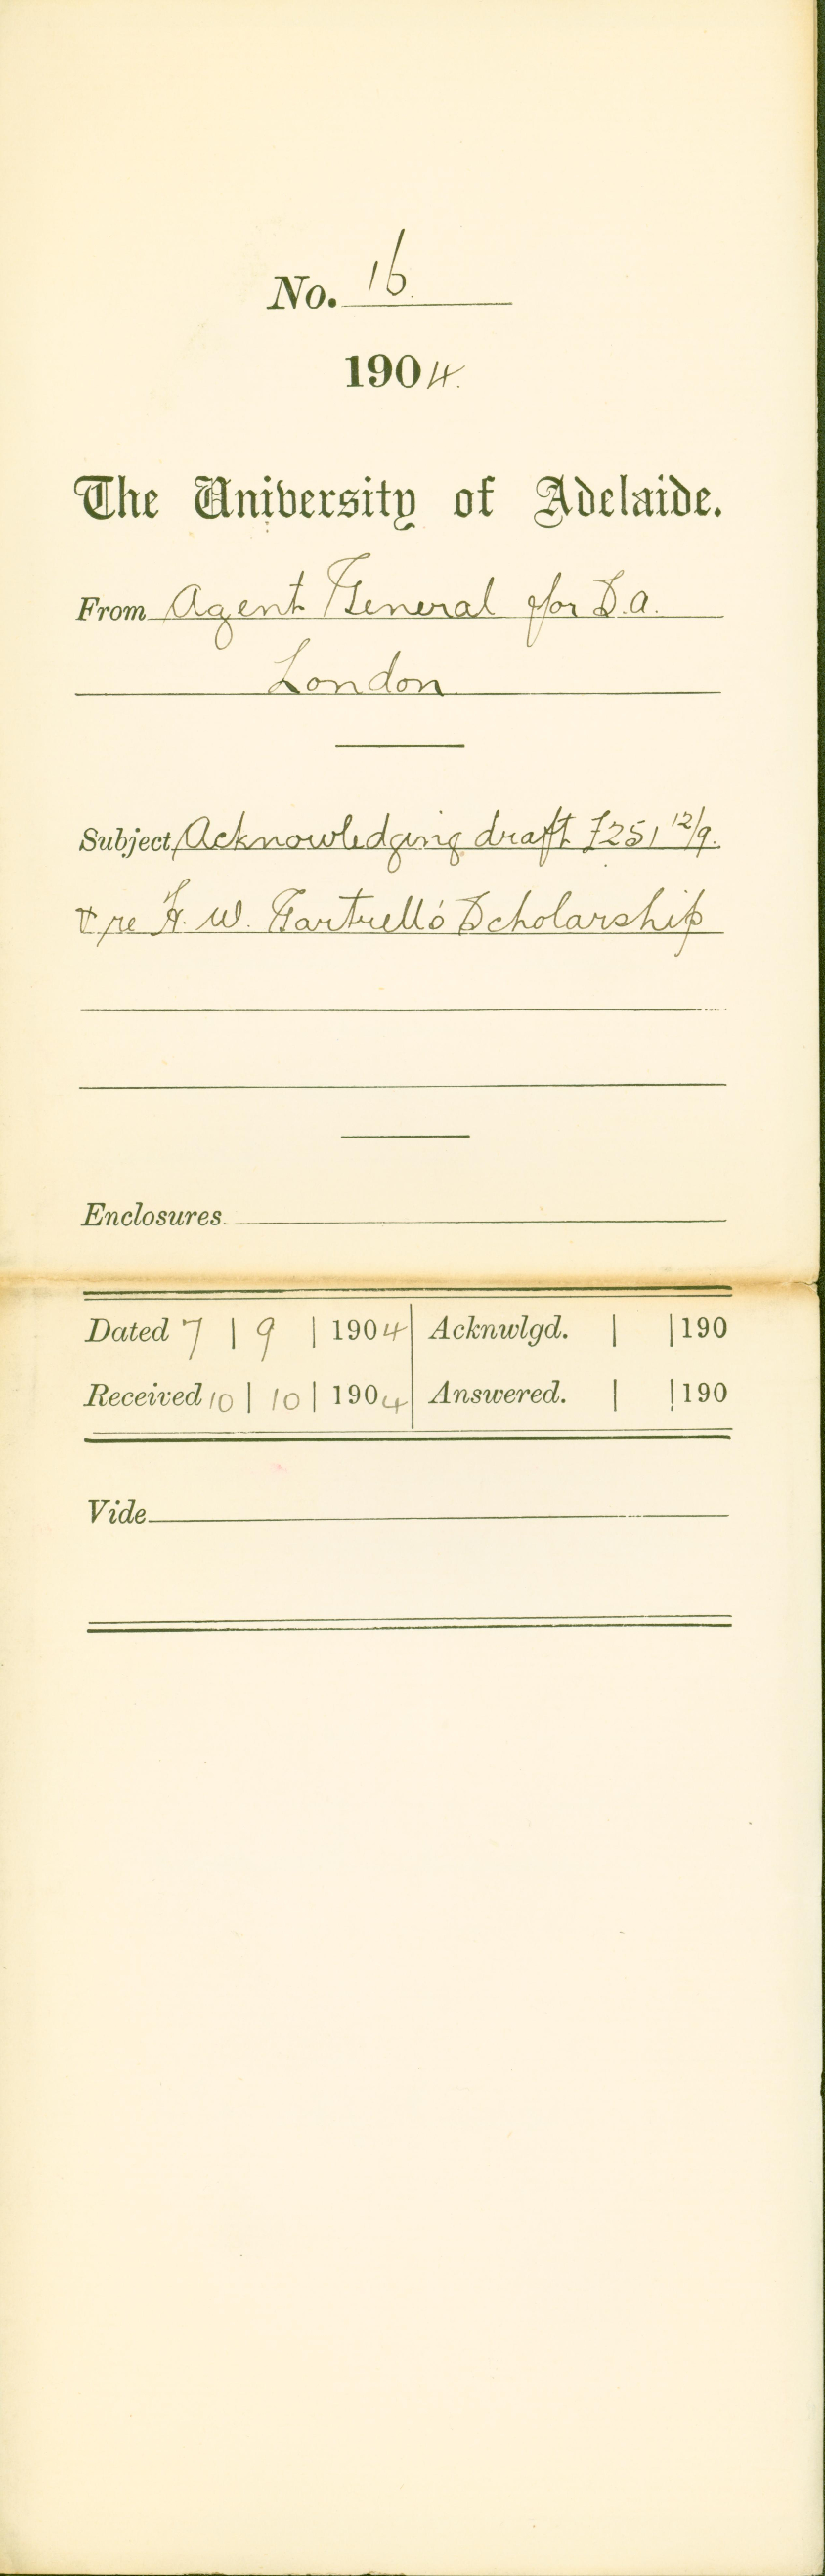 No. 16
1904.
The University of Adelaide.
From Agent General for S.A.
London
Subject Acknowledging draft £251 12/9.
& re H. W. Gartrell's Scholarship
Enclosures
Dated 7 | 9 | 1904 Acknwlgd. | | 190
Received 10 | 10 | 1904 Answered. | | 190
Vide